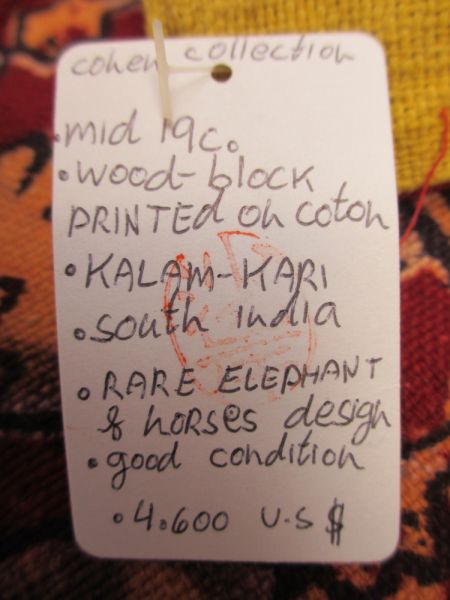 cohen collection
• mid 19c.
• wood-block
PRINTEd on coton
• KALAM-KARI
• south india
• RARE ELEPHANT
& hoRSes design
• good condition
• 4.600 U.S $